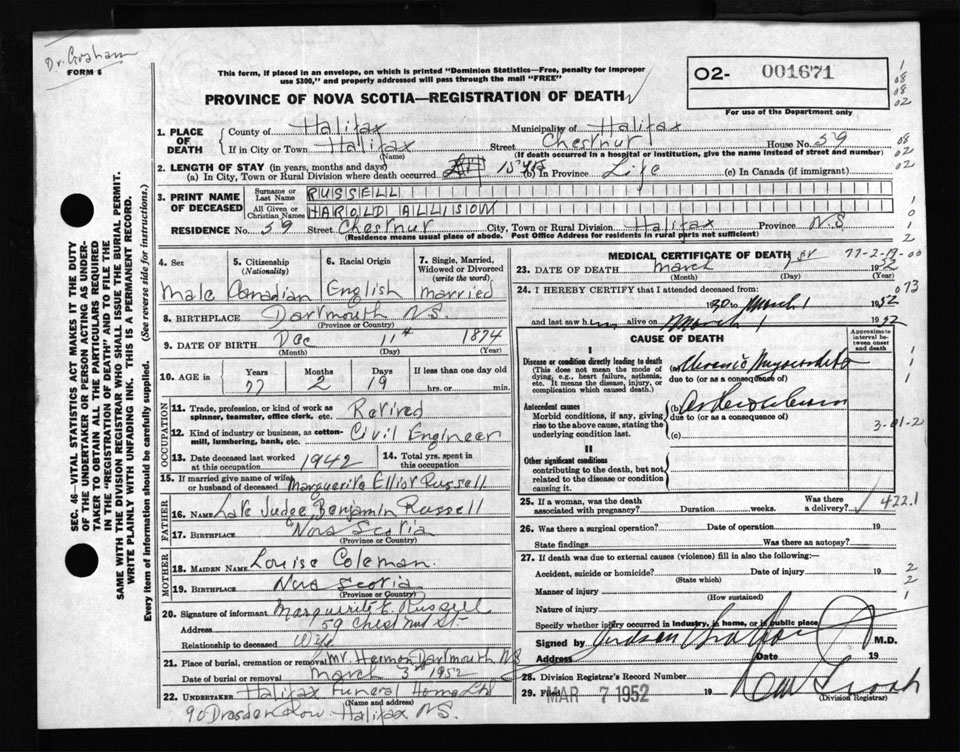 Dr. Graham
FORM 6
This form, if placed in an envelope, on which is printed "Dominion Statistics—Free, penalty for improper
use $300," and properly addressed will pass through the mail "FREE"
PROVINCE OF NOVA SCOTIA—REGISTRATION OF DEATH
O2- 001671
For use of the Department only
1. PLACE OF DEATH
County of Halifax Municipality of Halifax
If in City or Town Halifax Street Chestnut House No. 59
(Name) (If death occurred in a hospital or institution, give the name instead of street and number)
2. LENGTH OF STAY (in years, months and days)
(a) In City, Town or Rural Division where death occurred 15 yrs (b) In Province Life (c) In Canada (if immigrant)
3. PRINT NAME OF DECEASED
Surname or Last Name RUSSELL
All Given or Christian Names HAROLD ALLISON
RESIDENCE No. 59 Street Chestnut City, Town or Rural Division Halifax Province N.S.
(Residence means usual place of abode. Post Office Address for residents in rural parts not sufficient)
4. Sex Male
5. Citizenship (Nationality) Canadian
6. Racial Origin English
7. Single, Married, Widowed or Divorced (write the word) Married
8. BIRTHPLACE Dartmouth N.S.
(Province or Country)
9. DATE OF BIRTH Dec 11th 1874
(Month) (Day) (Year)
10. AGE in Years Months Days If less than one day
77 2 19 hrs. or min.
OCCUPATION
11. Trade, profession, or kind of work as spinner, teamster, office clerk, etc. Retired
12. Kind of industry or business, as cotton-mill, lumbering, bank, etc. Civil Engineer
13. Date deceased last worked at this occupation 1942
14. Total yrs. spent in this occupation
15. If married give name of wife or husband of deceased Marguerite Elliot Russell
FATHER
16. Name Late Judge Benjamin Russell
17. BIRTHPLACE Nova Scotia
(Province or Country)
MOTHER
18. MAIDEN NAME Louise Coleman.
19. BIRTHPLACE Nova Scotia
(Province or Country)
20. Signature of informant Marguerite E. Russell
Address 59 Chestnut St.
Relationship to deceased Wife
21. Place of burial, cremation or removal Mt. Hermon, Dartmouth N.S.
Date of burial or removal March 3rd 1952
22. UNDERTAKER Halifax Funeral Home Ltd
(Name and address)
90 Dresden Row Halifax N.S.
MEDICAL CERTIFICATE OF DEATH
77-2-19-00
23. DATE OF DEATH March 1952
(Month) (Day) (Year)
24. I HEREBY CERTIFY that I attended deceased from:
1930 to March 1 1952
and last saw him alive on March 1 1952
073
CAUSE OF DEATH
Approximate interval between onset and death
I
Disease or condition directly leading to death
(This does not mean the mode of dying, e.g., heart failure, asthenia, etc. It means the disease, injury, or complication which caused death.)
(a) Chronic Myocarditis
due to (or as a consequence of)
Antecedent causes
Morbid conditions, if any, giving rise to the above cause, stating the underlying condition last.
(b)
due to (or as a consequence of)
(c)
3-01-2
II
Other significant conditions
contributing to the death, but not related to the disease or condition causing it.
25. If a woman, was the death associated with pregnancy? Duration weeks. Was there a delivery?
422.1
26. Was there a surgical operation? Date of operation 19
State findings Was there an autopsy?
27. If death was due to external causes (violence) fill in also the following:—
Accident, suicide or homicide? Date of injury 19
(State which)
Manner of injury
(How sustained)
Nature of injury
Specify whether injury occurred in industry, in home, or in public place
Signed by M.D.
Address Date 19
28. Division Registrar's Record Number
29. Filed MAR 7 1952 19
(Division Registrar)
SEC. 46—VITAL STATISTICS ACT MAKES IT THE DUTY
OF THE UNDERTAKER OR PERSON ACTING AS UNDER-
TAKER TO OBTAIN ALL THE PARTICULARS REQUIRED
IN THE "REGISTRATION OF DEATH" AND TO FILE THE
SAME WITH THE DIVISION REGISTRAR WHO SHALL ISSUE THE BURIAL PERMIT.
WRITE PLAINLY WITH UNFADING INK. THIS IS A PERMANENT RECORD.
Every item of information should be carefully supplied. (See reverse side for instructions.)